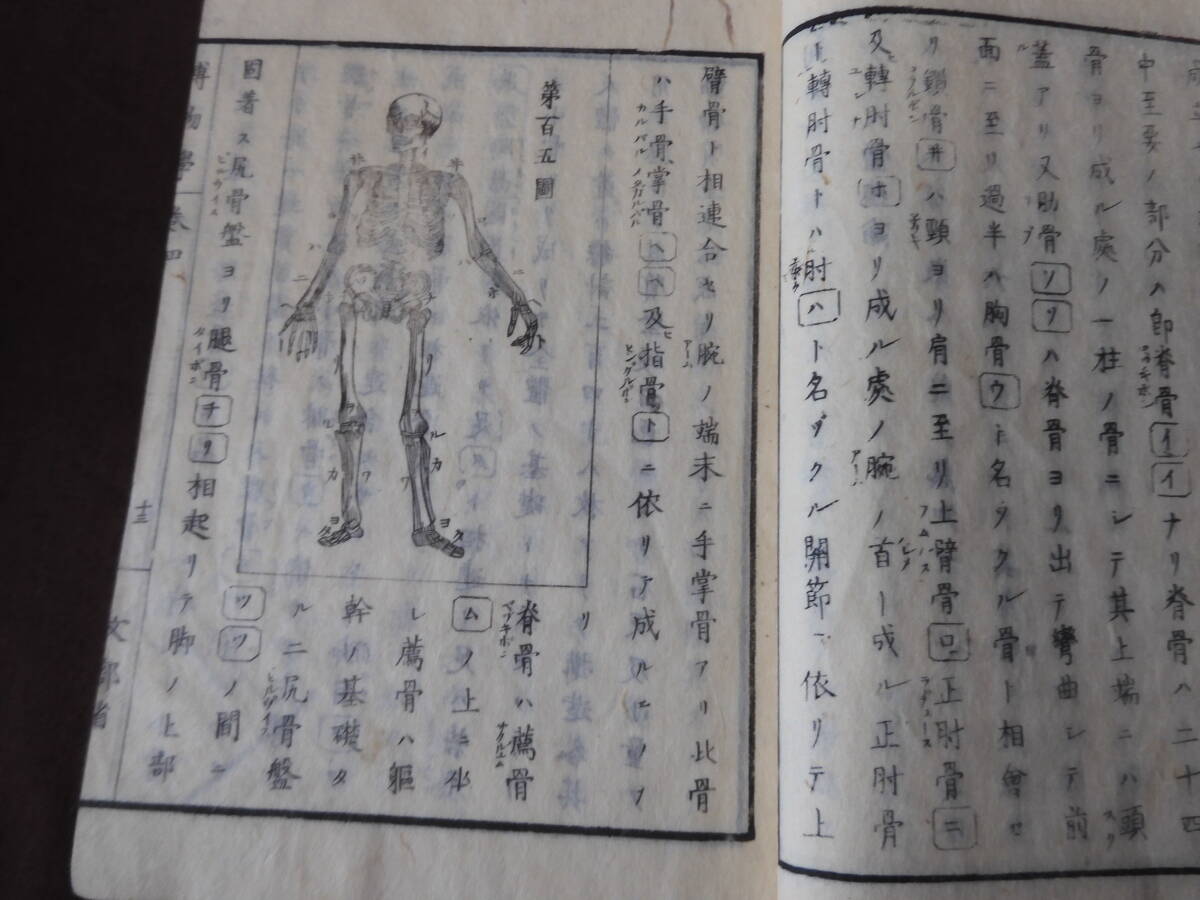 中至要ノ部分ハ卽脊骨イイナリ脊骨ハ二十四
骨ヨリ成ル處ノ一柱ノ骨ニシテ其上端ニハ頭
蓋アリ又肋骨ソソハ脊骨ヨリ出テ彎曲シテ前
面ニ至リ過半ハ胸骨ウト名ヅクル骨ト相會セ
リ鎖骨井ハ頸ヨリ肩ニ至リ上臂骨ロ正肘骨ニ
及轉肘骨ホヨリ成ル處ノ腕ノ首ー成ル正肘骨
ト轉肘骨トハ肘ハト名ヅクル關節ニ依リテ上
臂骨ト相連合セリ腕ノ端末ニ手掌骨アリ此骨
ハ手骨掌骨ヘヘ及指骨トニ依リテ成ルモノ
第百五圖
リ
脊骨ハ薦骨
ムノ上ニ
レ薦骨ハ軀
幹ノ基礎タ
ルニ尻骨盤
ツツノ間ニ
固著ス尻骨盤ヨリ腿骨チリ相起リテ脚ノ上部
博物學 卷四
十三
文部省